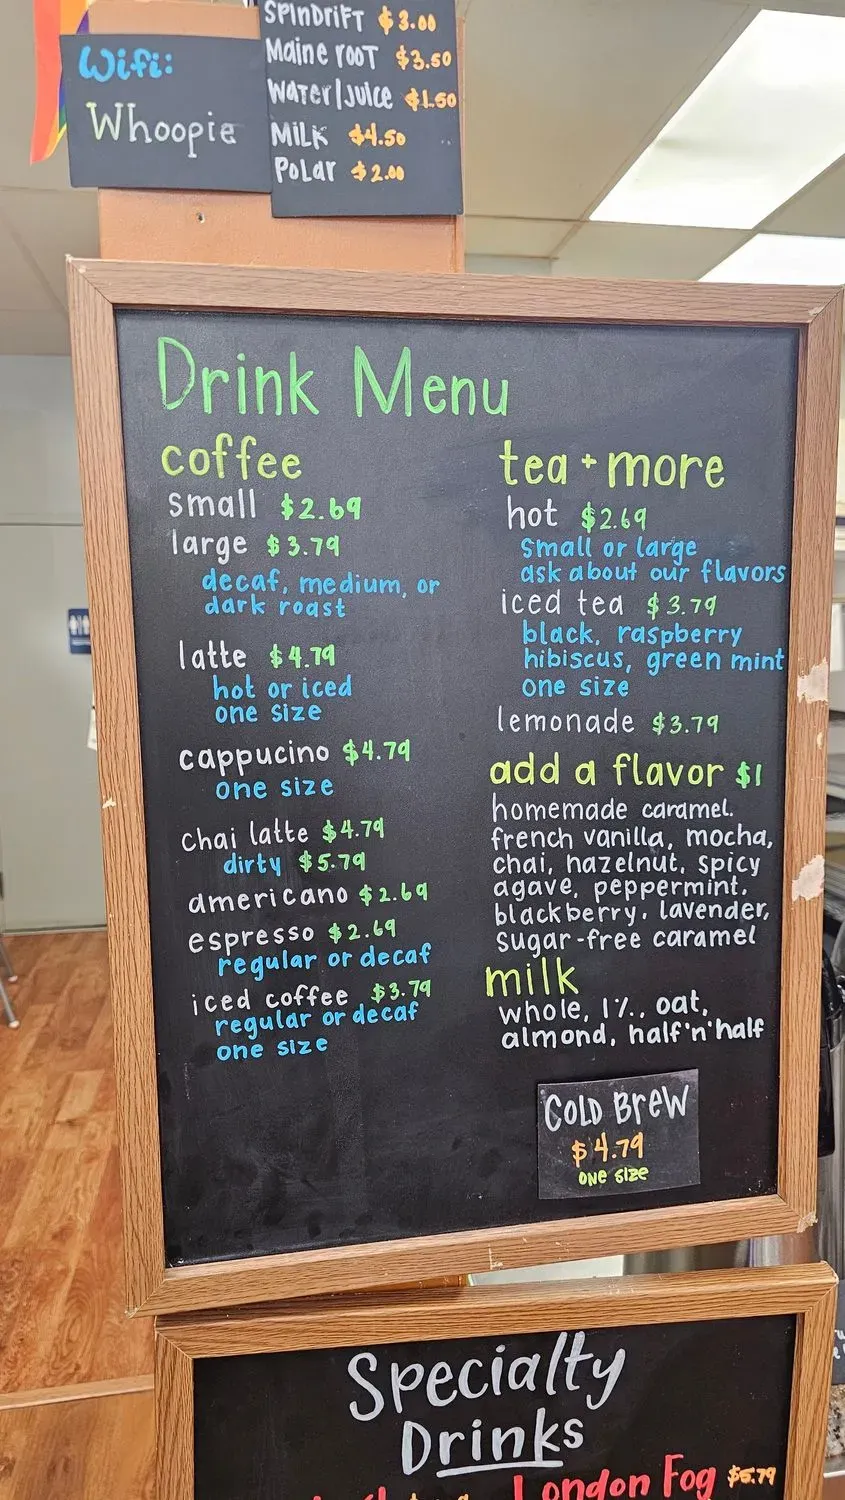 Wifi:
Whoopie
Spindrift $3.00
Maine root $3.50
Water/Juice $1.50
Milk $4.50
Polar $2.00
Drink Menu
coffee
small $2.69
large $3.79
decaf, medium, or
dark roast
latte $4.79
hot or iced
one size
cappucino $4.79
one size
chai latte $4.79
dirty $5.79
americano $2.69
espresso $2.69
regular or decaf
iced coffee $3.79
regular or decaf
one size
tea + more
hot $2.69
small or large
ask about our flavors
iced tea $3.79
black, raspberry
hibiscus, green mint
one size
lemonade $3.79
add a flavor $1
homemade caramel.
french vanilla, mocha,
chai, hazelnut, spicy
agave, peppermint,
blackberry, lavender,
sugar-free caramel
milk
whole, 1%, oat,
almond, half'n'half
Cold Brew
$4.79
one size
Specialty
Drinks
London Fog $5.79